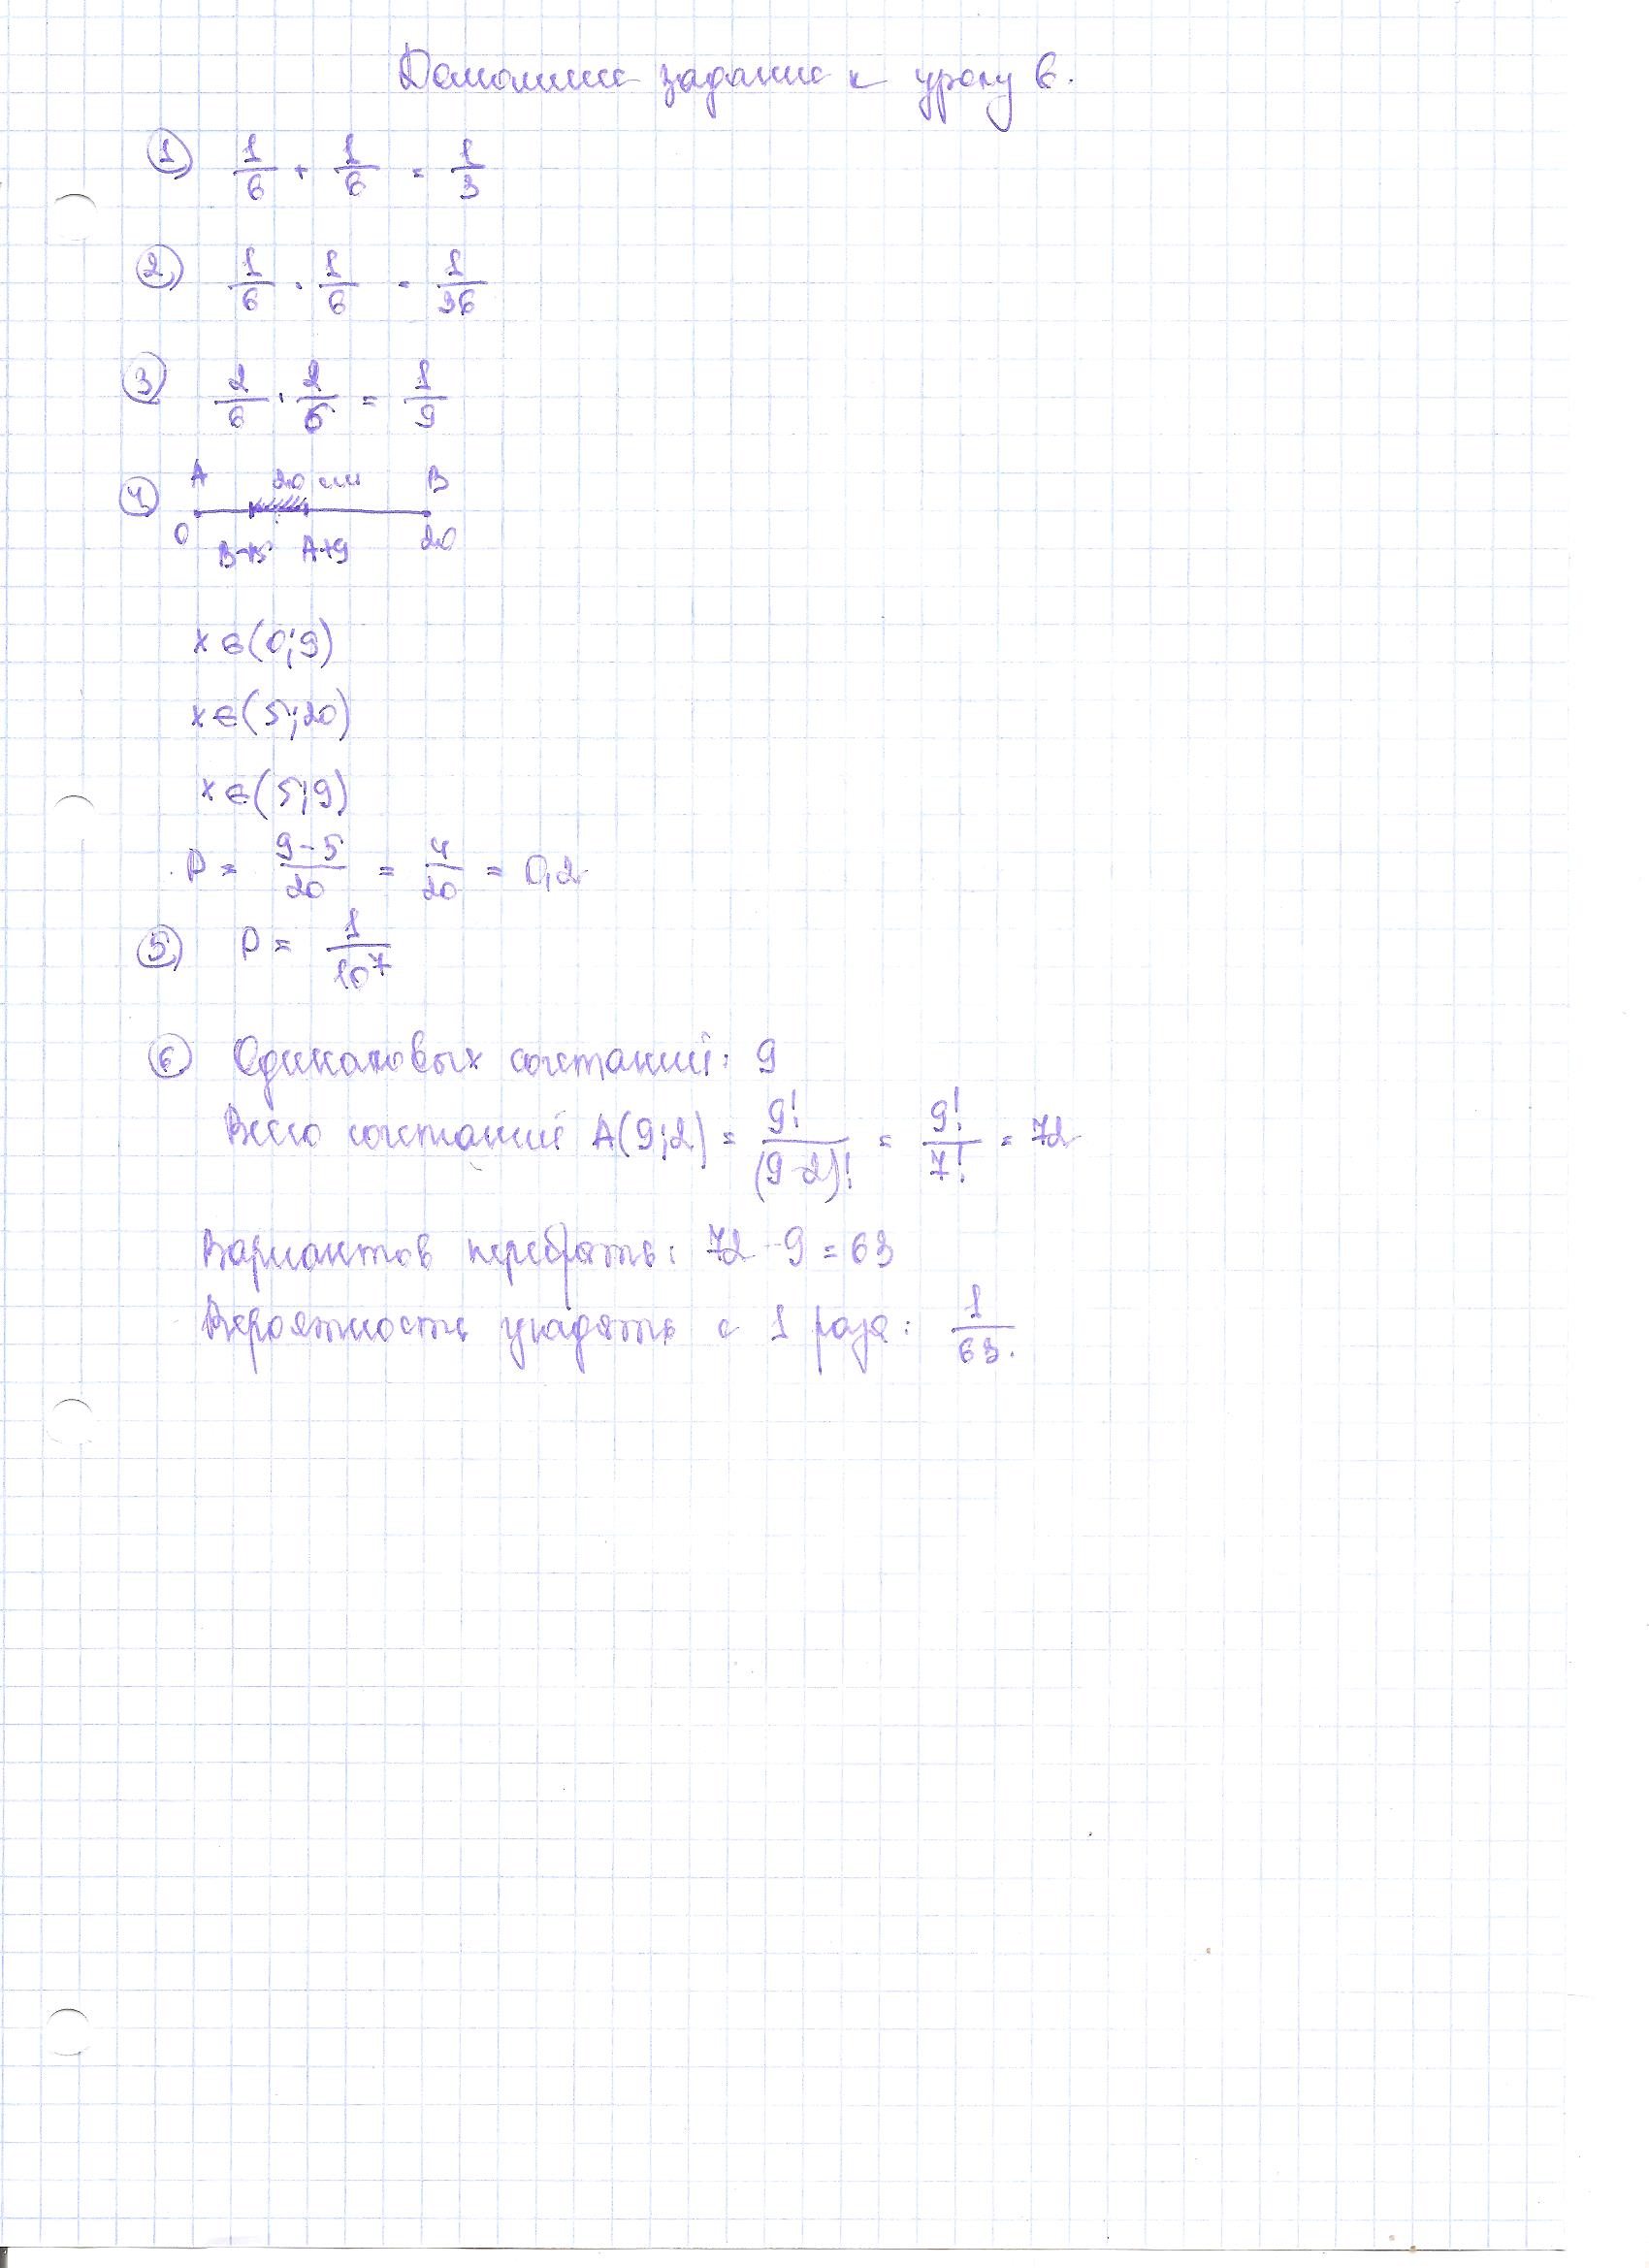 Домашнее задание к уроку 6.
① 1/6 + 1/6 = 1/3
② 1/6 · 1/6 = 1/36
③ 2/6 · 2/6 = 1/9
④ A 20 см B
0 B-15 A+9 20
x ∈ (0;9)
x ∈ (5;20)
x ∈ (5;9)
P = (9-5)/20 = 4/20 = 0,2
⑤ P = 1/10⁷
⑥ Одинаковых сочетаний: 9
Всего сочетаний A(9;2) = 9!/(9-2)! = 9!/7! = 72
Вариантов перебрать: 72-9=63
Вероятность угадать с 1 раза: 1/63.